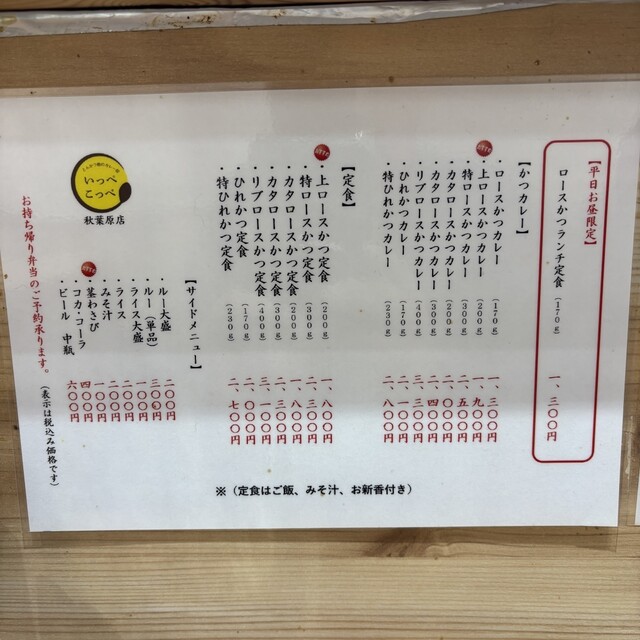 【平日お昼限定】
ロースかつランチ定食 (170g) 一、三〇〇円
【かつカレー】
・ロースかつカレー (170g) 一、三〇〇円
おすすめ
・上ロースかつカレー (200g) 一、九〇〇円
・特ロースかつカレー (300g) 二、五〇〇円
・カタロースかつカレー (200g) 二、〇〇〇円
・カタロースかつカレー (300g) 二、四〇〇円
・リブロースかつカレー (400g) 三、三〇〇円
・ひれかつカレー (170g) 二、一〇〇円
・特ひれかつカレー (230g) 二、八〇〇円
【定食】
おすすめ
・上ロースかつ定食 (200g) 一、八〇〇円
・特ロースかつ定食 (300g) 二、三〇〇円
・カタロースかつ定食 (200g) 一、八〇〇円
・カタロースかつ定食 (300g)
・リブロースかつ定食 (400g) 三、一〇〇円
・ひれかつ定食 (170g) 二、〇〇〇円
・特ひれかつ定食 (230g) 二、七〇〇円
※（定食はご飯、みそ汁、お新香付き）
【サイドメニュー】
・ルー大盛 二〇〇円
・ルー（単品） 三〇〇円
・ライス大盛 一〇〇円
・ライス 二〇〇円
・みそ汁 二〇〇円
おすすめ
・茎わさび 一〇〇円
・コカ・コーラ 四〇〇円
・ビール 中瓶 六〇〇円
とんかつ檍のカレー屋
いっぺ
こっぺ
秋葉原店
お持ち帰り弁当のご予約承ります。
（表示は税込み価格です）